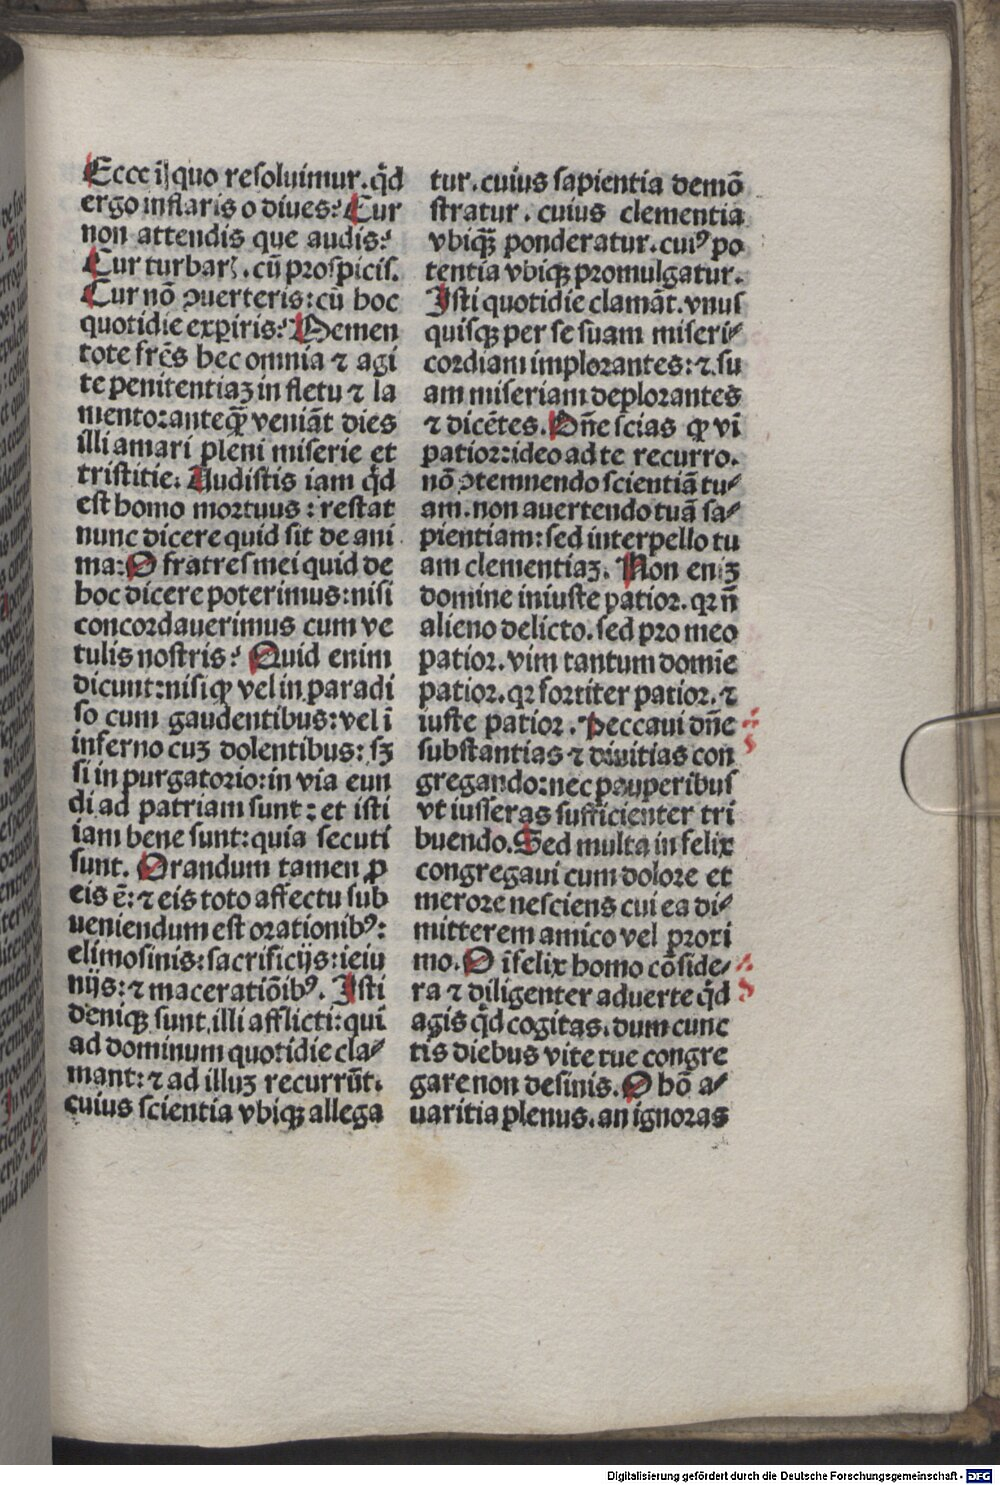 Ecce ĩ quo resoluimur. q̃d
ergo inflaris o diues? Cur
non attendis que audis?
Cur turbarꝭ. cũ prospicis.
Cur nõ ꝯuerteris: cũ hoc
quotidie experiris? Memen
tote frẽs hec omnia ⁊ agi
te penitentiaꝫ in fletu ⁊ la
mento: anteq̃ȝ veniãt dies
illi amari pleni miserie et
tristitie. Audistis iam q̃d
est homo mortuus: restat
nunc dicere quid sit de ani
ma: O fratres mei quid de
hoc dicere poterimus: nisi
concordauerimus cum ve
tulis nostris? Quid enim
dicunt: nisi qꝫ vel in paradi
so cum gaudentibus: vel ĩ
inferno cuꝫ dolentibus: sꝫ
si in purgatorio: in via eun
di ad patriam sunt: et isti
iam bene sunt: quia secuti
sunt. Orandum tamen ꝓ
eis ẽ: ⁊ eis toto affectu sub
ueniendum est orationibꝰ:
elimosinis: sacrificijs: ieiu
nijs: ⁊ maceratiõibꝰ. Isti
deniqꝫ sunt illi afflicti: qui
ad dominum quotidie cla⸗
mant: ⁊ ad illuꝫ recurrũt.
cuius scientia vbiqꝫ allega
tur. cuius sapientia demõ
stratur. cuius clementia
vbiqꝫ ponderatur. cuiꝰ po
tentia vbiqꝫ promulgatur.
Isti quotidie clamãt. vnus
quisqꝫ per se suam miseri⸗
cordiam implorantes: ⁊ su
am miseriam deplorantes
⁊ dicẽtes. Dñe scias qꝫ vĩ
patior: ideo ad te recurro.
nõ ꝯtemnendo scientiã tu⸗
am. non auertendo tuã sa⸗
pientiam: sed interpello tu
am clementiaꝫ. Non eniꝫ
domine iniuste patior. qꝛ ñ
alieno delicto. sed pro meo
patior. vim tantum domĩe
patior. qꝛ fortiter patior. ⁊
iuste patior. Peccaui dñe
substantias ⁊ diuitias con
gregando: nec pauperibus
vt iusseras sufficienter tri
buendo. Sed multa infelix
congregaui cum dolore et
merore nesciens cui ea di⸗
mitterem amico vel proxi
mo. O ĩfelix homo cõside⸗
ra ⁊ diligenter aduerte q̃d
agis q̃d cogitas. dum cunc
tis diebus vite tue congre
gare non desinis. O hõ a⸗
uaritia plenus. an ignoras
Digitalisierung gefördert durch die Deutsche Forschungsgemeinschaft - DFG